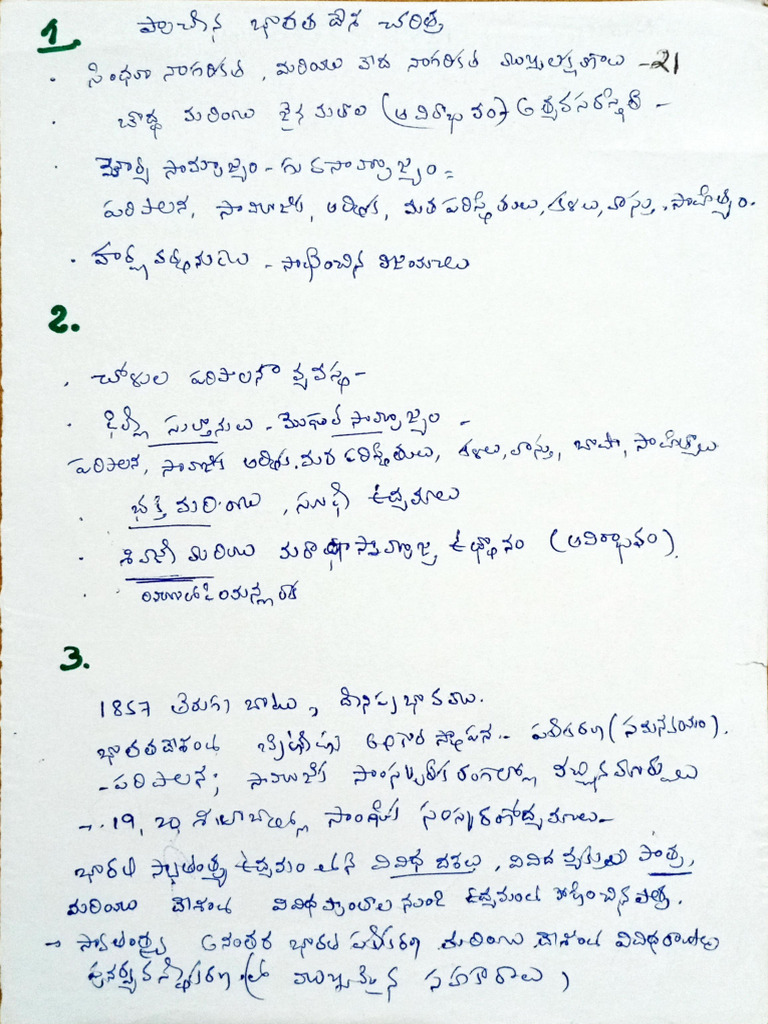 1. ప్రాచీన భారత దేశ చరిత్ర
· సింధూ నాగరికత, మరియు వేద నాగరికత ముఖ్యలక్షణాలు -21
· బౌద్ధ మరియు జైన మతాల (ఆవిర్భావం)
· మౌర్య సామ్రాజ్యం - గుప్తసామ్రాజ్యం =
పరిపాలన, సామాజిక, ఆర్థిక, మత పరిస్థితులు, కళలు, వాస్తు, సాహిత్యం.
· హర్షవర్ధనుడు - సాధించిన విజయాలు
2.
· చోళుల పరిపాలనా వ్యవస్థ -
· ఢిల్లీ సుల్తానులు - మొఘల్ సామ్రాజ్యం -
పరిపాలన, సామాజిక ఆర్థిక, మత పరిస్థితులు, కళలు, వాస్తు, బాషా, సాహిత్యాలు
· భక్తి మరియు, సూఫీ ఉద్యమాలు
· శివాజీ మరియు మరాఠా సామ్రాజ్య ఉత్థానం (ఆవిర్భావం).
3.
1857 తిరుగుబాటు, దానిప్రభావము.
భారతదేశంలో బ్రిటీషు అధికార స్థాపన - ఏకీకరణ
- పరిపాలన; సామాజిక సాంస్కృతిక రంగాల్లో వచ్చిన మార్పులు
→ 19, 20 శతాబ్దాల్లో సాంఘిక సంస్కరణోద్యమాలు -
భారత స్వాతంత్ర్య ఉద్యమం వివిధ దశలు, వివిద వ్యక్తుల పాత్ర,
మరియు దేశంలో వివిధప్రాంతాల నుండి ఉద్యమంలో పోషించినపాత్ర.
→ స్వాతంత్ర్య అనంతర భారత ఏకీకరణ మరియు దేశంలో వివిధరాష్ట్రాల
పునర్వ్యవస్థీకరణ ముఖ్యమైన సహకారాలు)